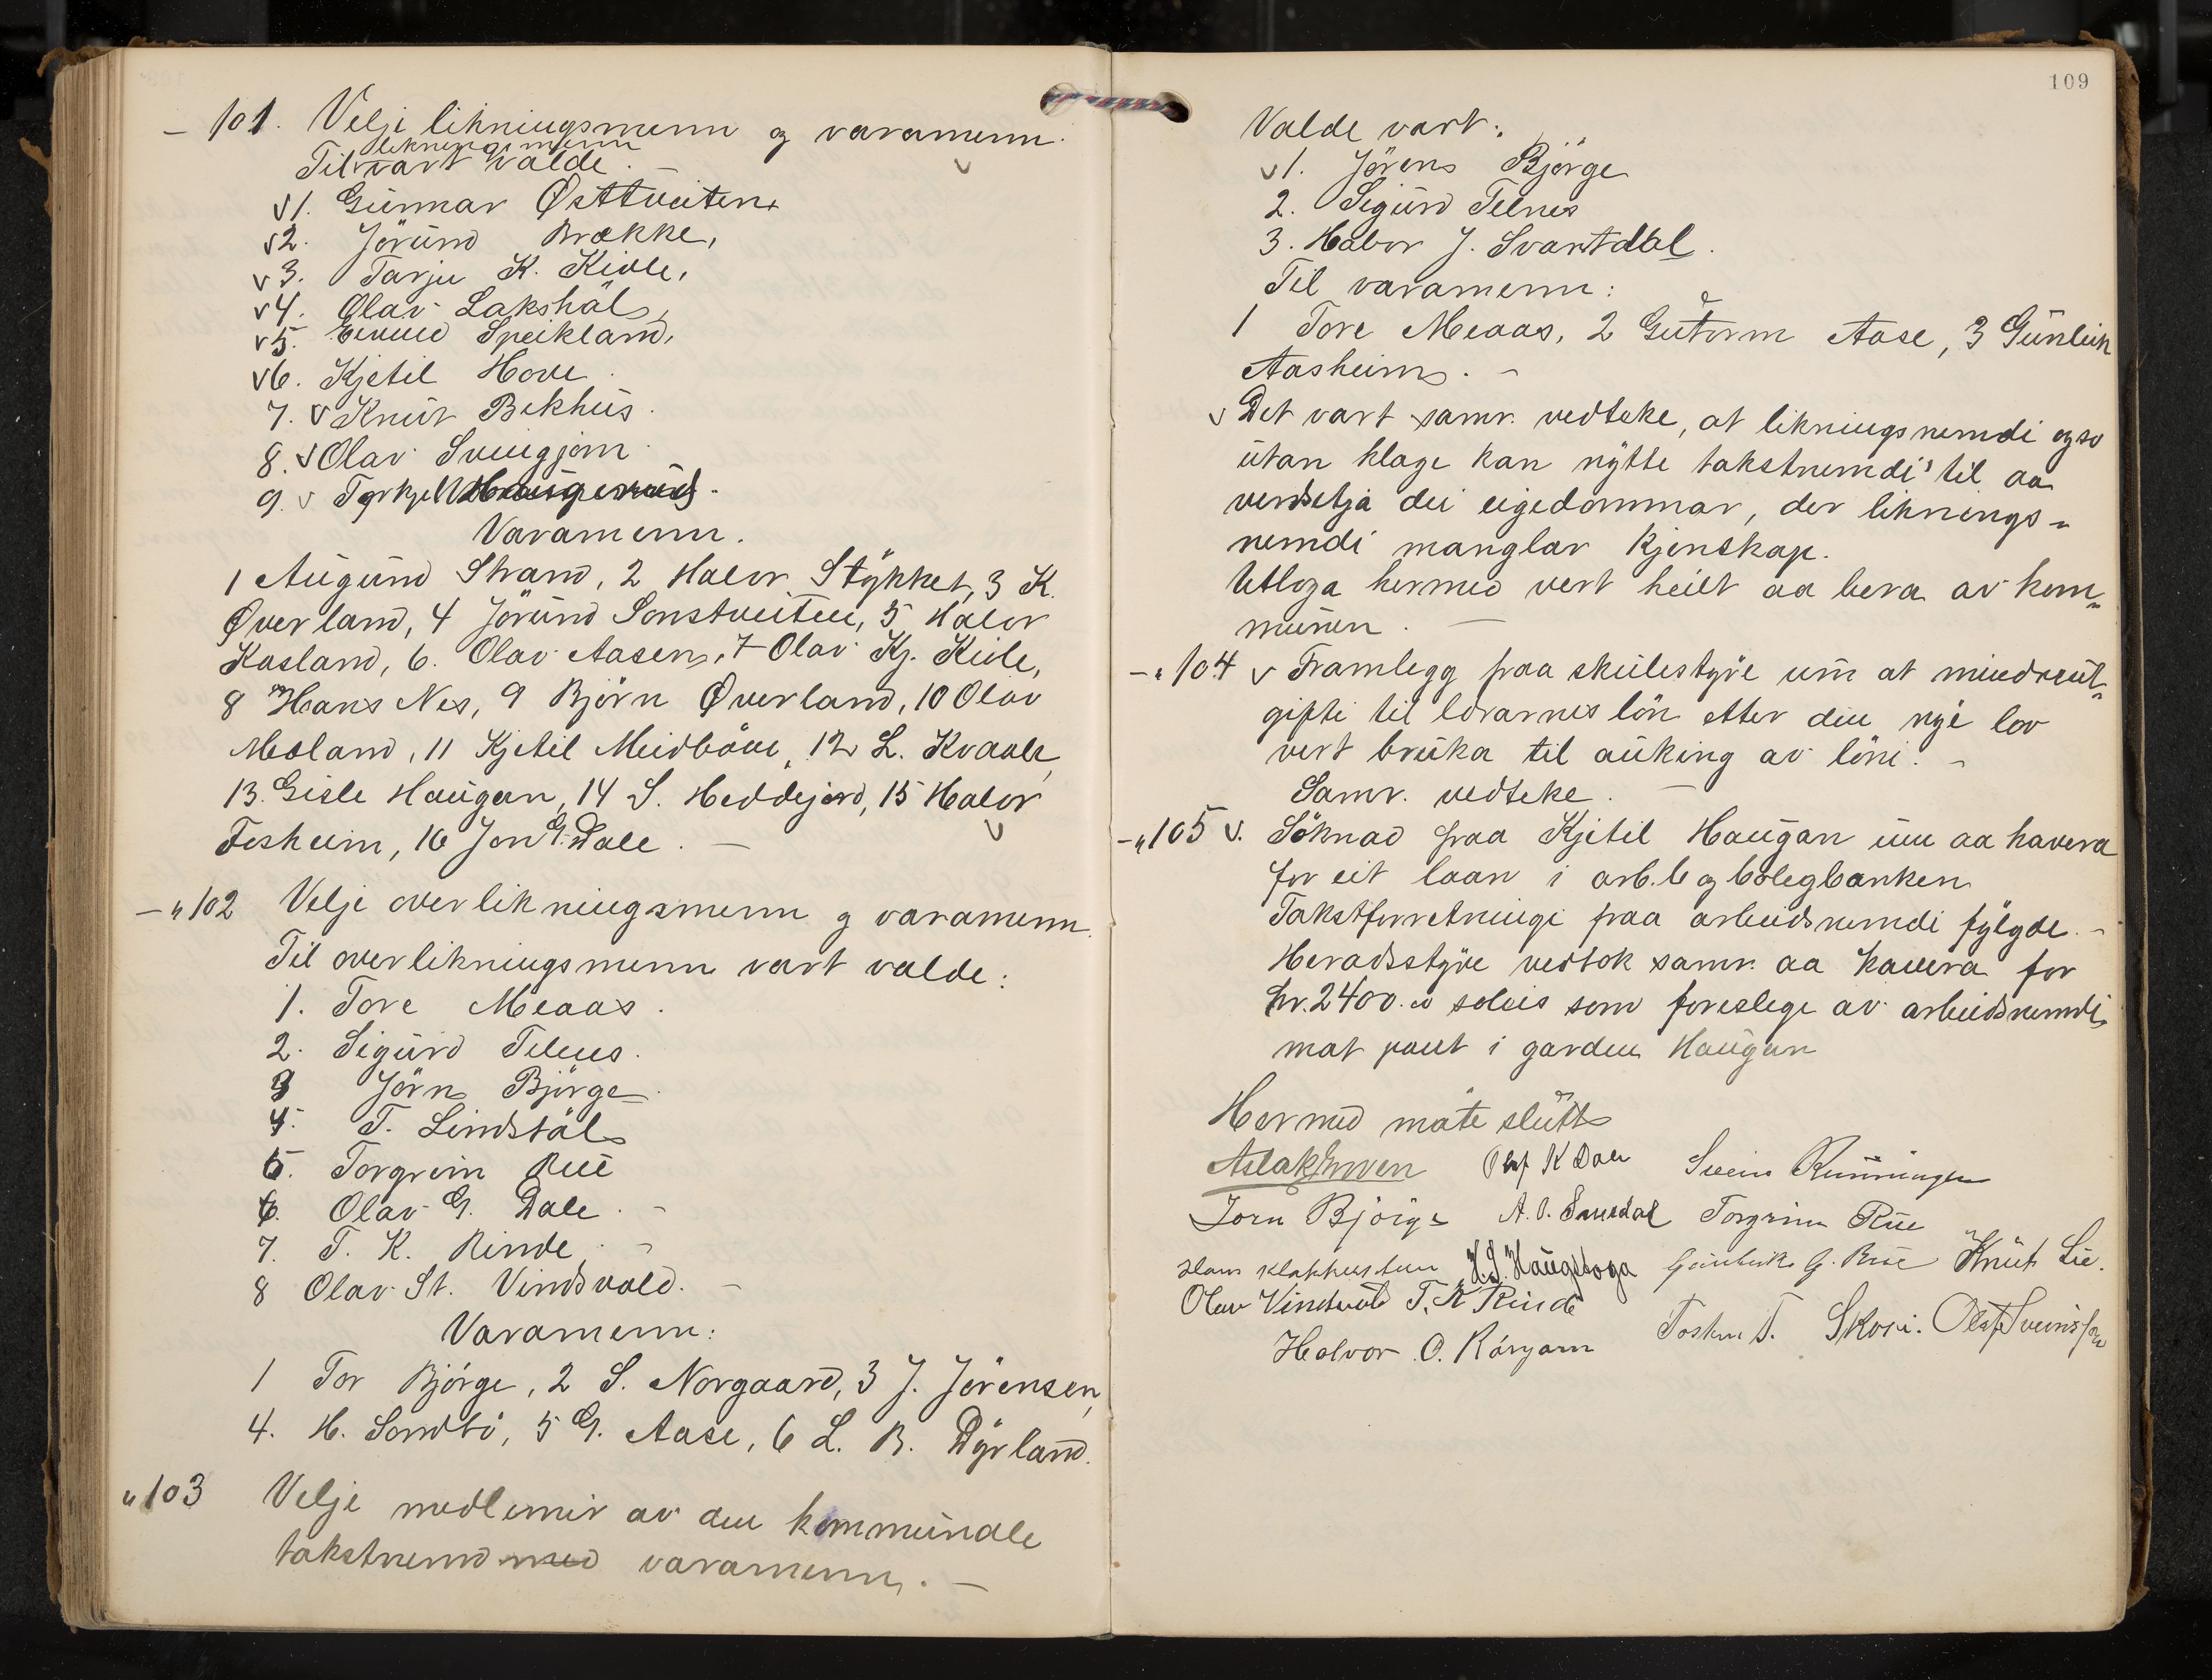 - 101. Velje likningsmenn og varamenn.
likningsmenn
Til vart valde.
v 1. Gunnar Østtveiten
v 2. Jörund Brække,
v 3. Tarju K. Kivle,
v 4. Olav Lakshöl,
v 5. Eivind Speikland,
v 6. Kjetil Hove.
7. v Knut Bekhus.
8. v Olav Svingjom
9. v Torkjell Haugerud.
Varamenn.
1 Augund Strand, 2 Halvor Stykket, 3 K.
Øverland, 4 Jörund Sonstveiten, 5 Halvor
Kasland, 6. Olav Aasen, 7 Olav Kj. Kivle,
8 Hans Nes, 9 Björn Øverland, 10 Olav
Mæland, 11 Kjetil Meidböen, 12 L. Kvaale,
13. Gisle Haugan, 14 S. Heddejord, 15 Halvor
Fosheim, 16 Jon G. Dale. -
- " 102 Velje overlikningsmenn og varamenn.
Til overlikningsmenn vart valde:
1. Tore Meaas.
2. Sigurd Telnes.
3 Jörn Björge
4. T. Lindstöl
5. Torgrim Rue
6. Olav G. Dale. -
7. T. K. Rinde. -
8 Olav St. Vindsvold. -
Varamenn:
1 Tor Björge, 2 S. Norgaard, 3 J. Jörensen,
4. H. Sondbö, 5 G. Aase, 6 L. B. Dyrland.
" 103 Velje medlemir av den kommunale
takstnemd med varamenn. -
109
Valde vart:
v 1. Jörens Björge
2. Sigurd Telnes
3. Halvor J. Svartdal.
Til varamenn:
1 Tore Meaas, 2 Gutorm Aase, 3 Gunleik
Aasheim. -
v Det vart samr. vedteke, at likningsnemdi ogso
utan klage kan nytte takstnemdi til aa
verdsetja dei eigedommar, der liknings-
nemdi manglar kjenskap.
Utloga hermed vert heilt aa bera av kom-
munen. -
- " 104 v Framlegg fraa skulestyre um at mindreut-
gifti til lærarnes lön etter den nye lov
vert bruka til auking av löni. -
Samr. vedteke. -
- " 105 v. Söknad fraa Kjetil Haugan um aa kavera
for eit laan i arb.b og bolegbanken
Takstforretningi fraa arbeidsnemdi fylgde. -
Heradsstyre vedtok samr. aa kavera for
kr. 2400.00 soleis som foreslege av arbeidsnemdi
mot pant i garden Haugan
Hermed möte slutt
Aslak Olaf K Dale Svein Runningen
Jorn Bjórge A. O. Torgrim Rue
H.S. Haugstoga Gunleik G. Rue Knut Lie.
Olav Vindsvold T. K Rinde
Halvor O. T. Skori. Olaf Sveinsson